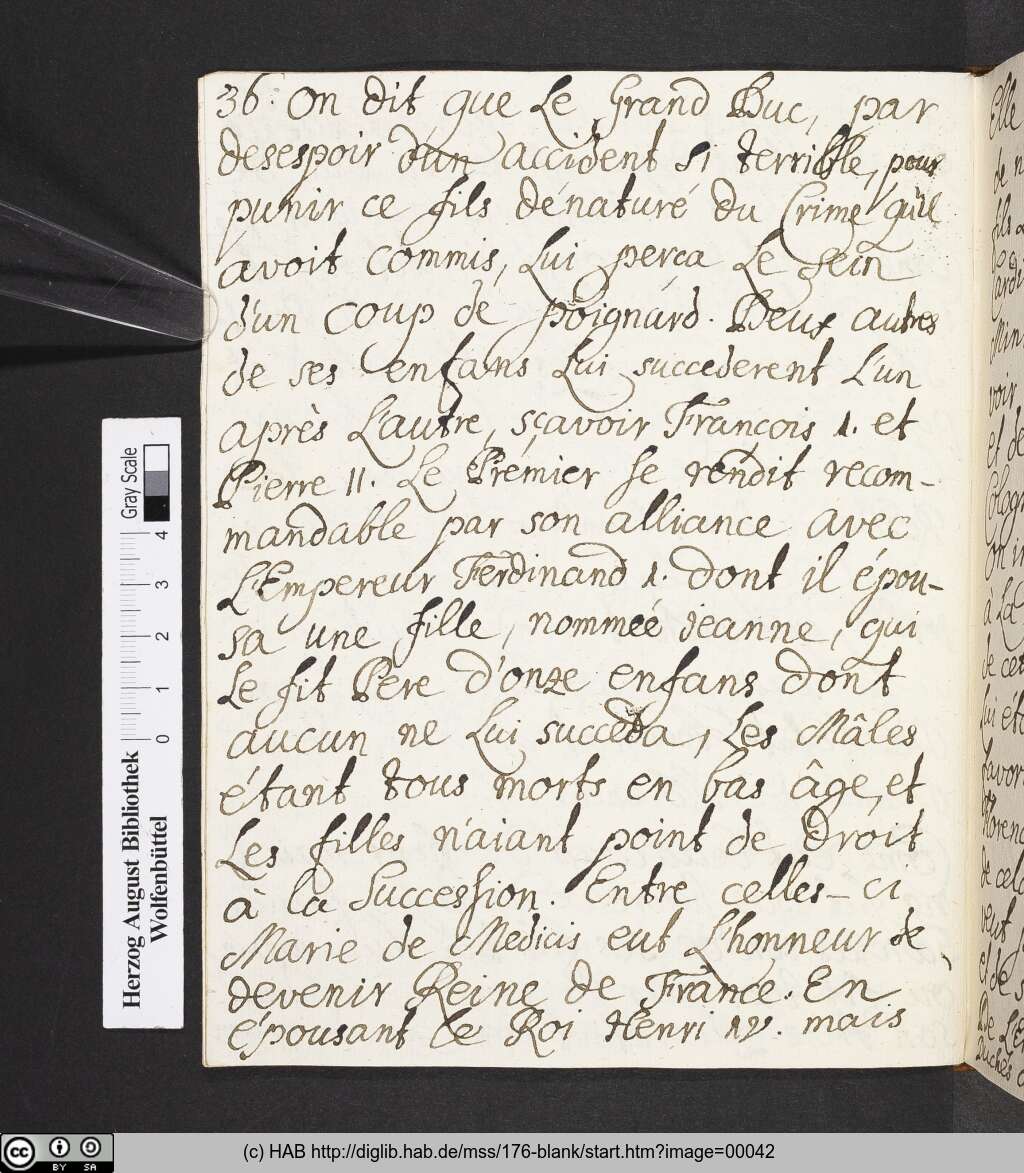 36. On dit que Le Grand Duc, par
desespoir d'un accident si terrible, pour
punir ce fils dénaturé du Crime qu'il
avoit commis, Lui perça Le sein
d'un coup de poignard. Deux autres
de ses enfans Lui succederent L'un
après L'autre, sçavoir Francois 1. et
Pierre II. Le Prémier se rendit recom-
mandable par son alliance avec
L'Empereur Ferdinand 1. dont il épou-
sa une fille, nommeé jeanne, qui
Le fit Pere d'onze enfans dont
aucun ne Lui succeda, Les Mâles
étant tous morts en bas âge, et
Les filles n'aiant point de Droit
à la Succession. Entre celles-ci
Marie de Medicis eut L'honneur de
devenir Reine de France. En
épousant le Roi Henri IV. mais
Herzog August Bibliothek
Wolfenbüttel
Gray Scale
0 1 2 3 4
cc BY SA
(c) HAB http://diglib.hab.de/mss/176-blank/start.htm?image=00042